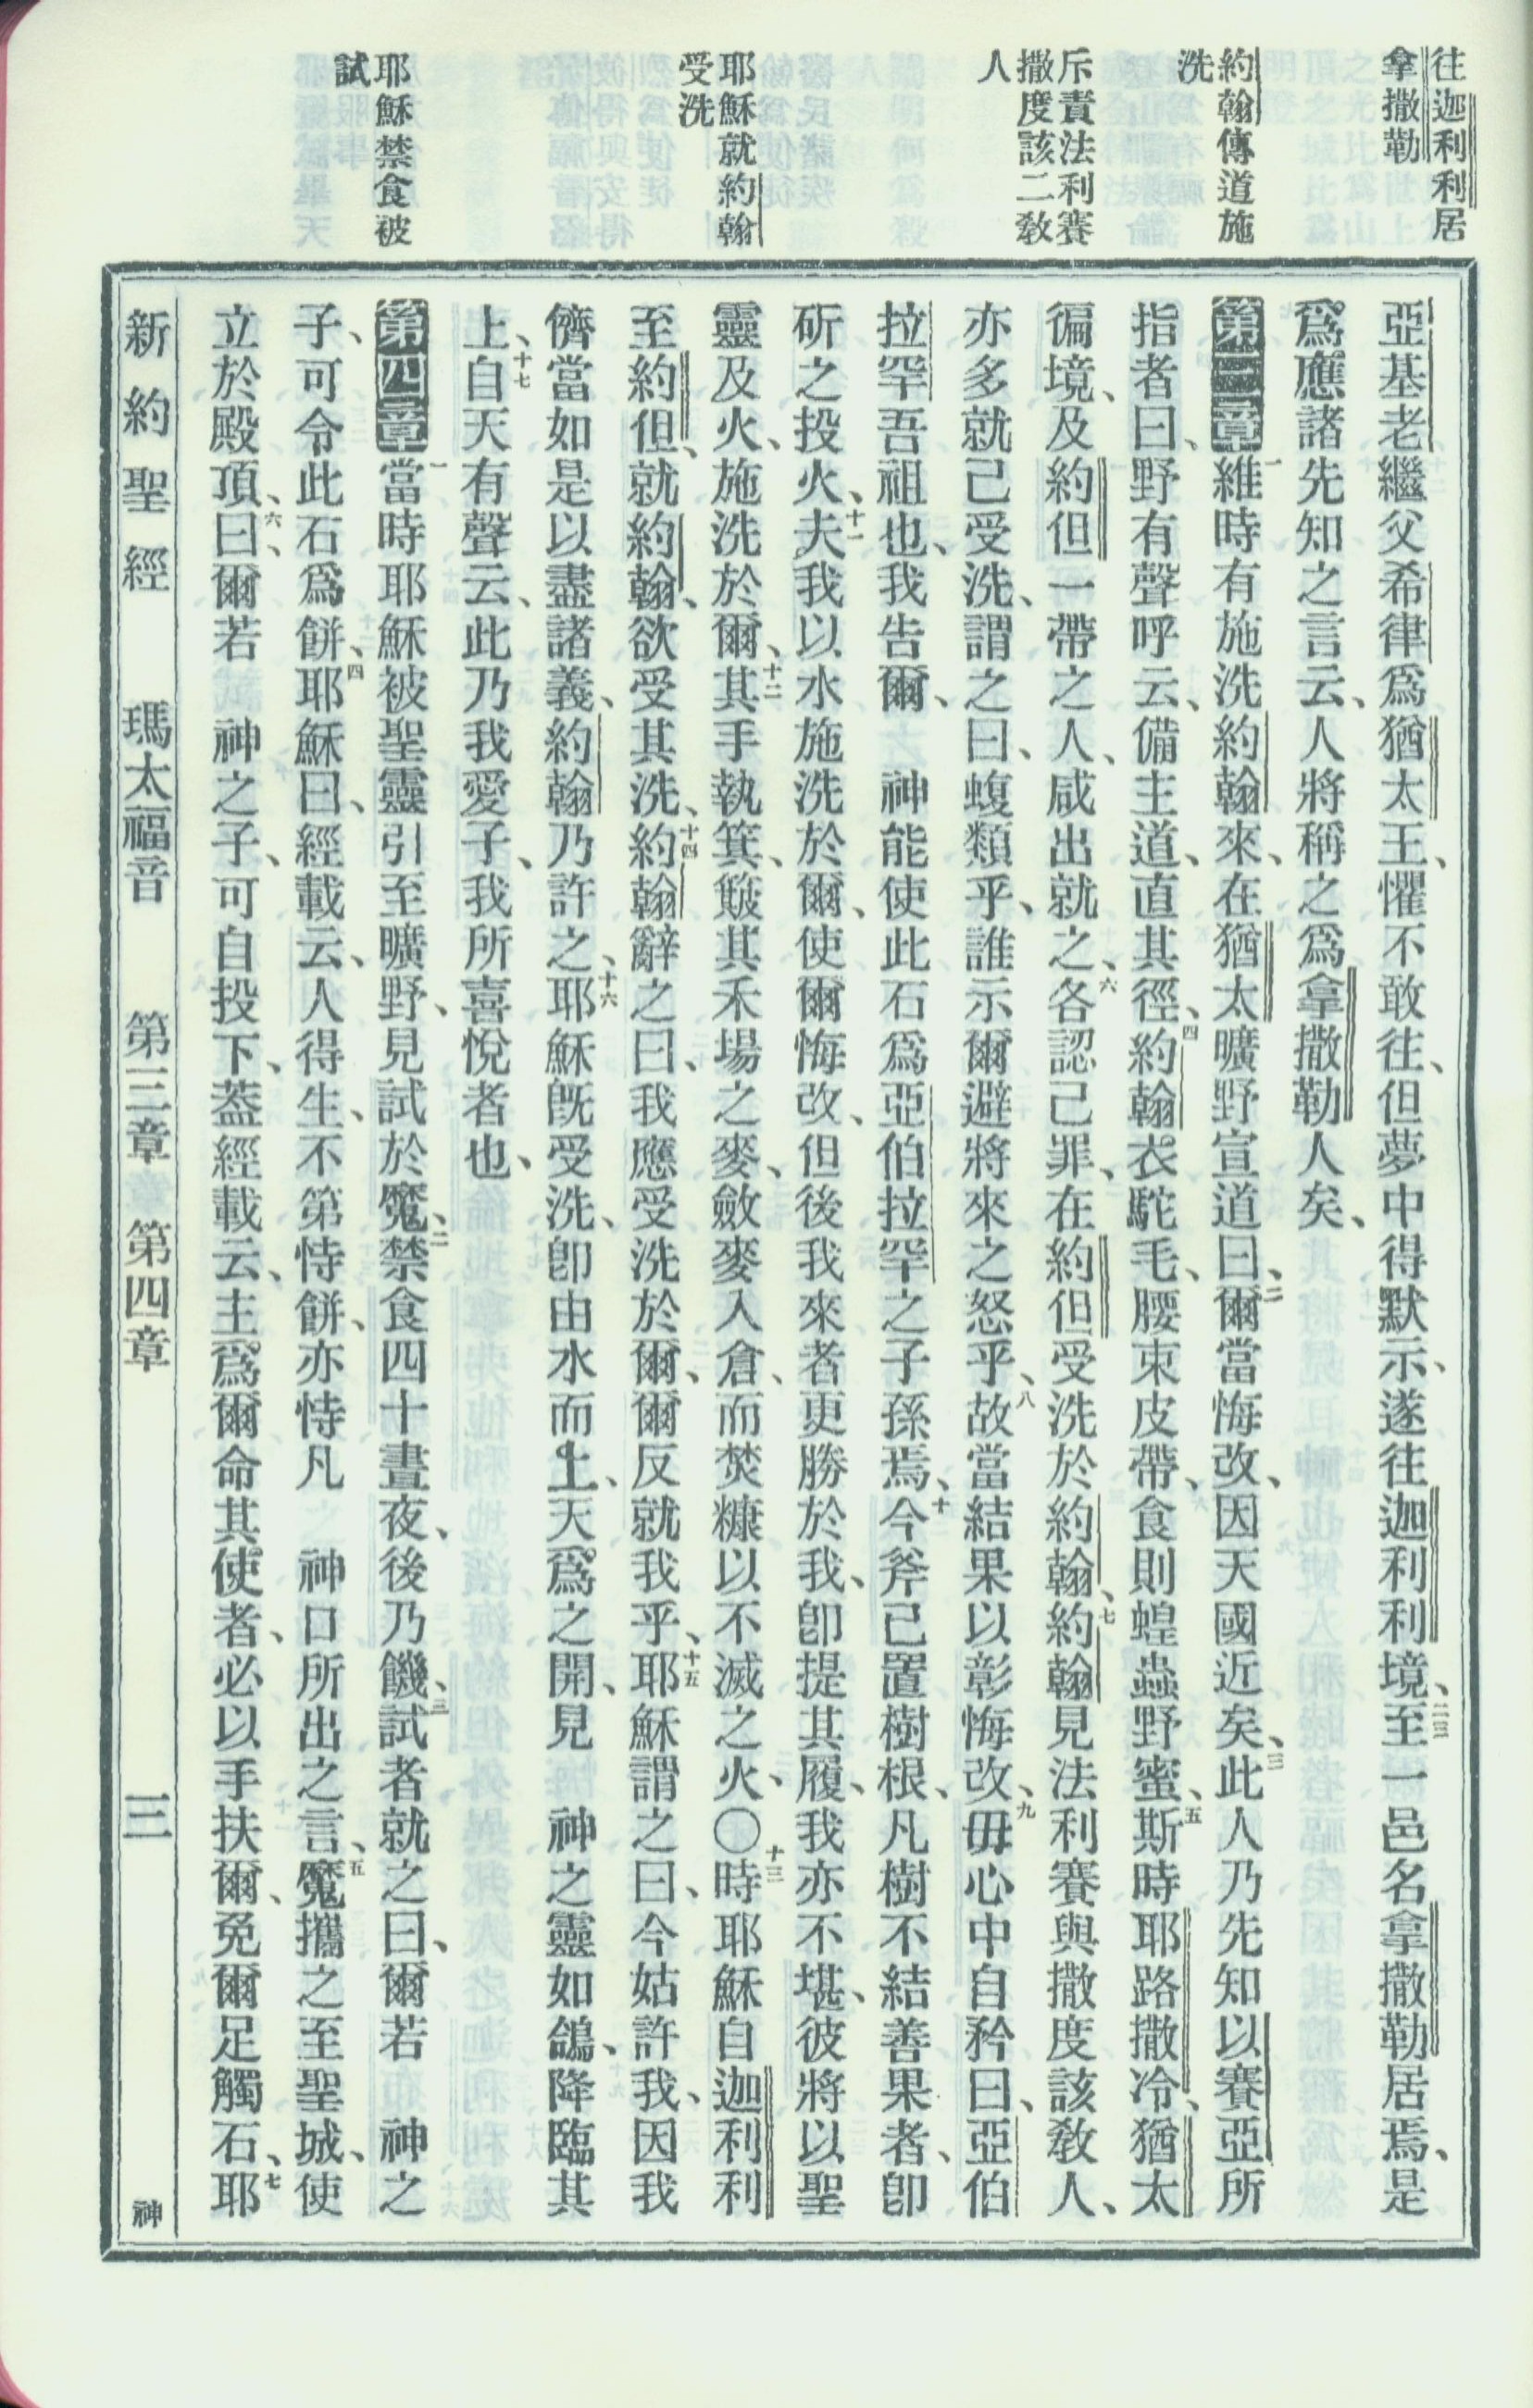 往迦利利居
拿撒勒
約翰傳道施
洗
斥責法利賽
撒度該二教
人
耶穌就約翰
受洗
耶穌禁食被
試
亞基老繼父希律爲猶太王、懼不敢往、但夢中得默示、遂往迦利利境、二三至一邑名拿撒勒居焉、是
爲應諸先知之言云、人將稱之爲拿撒勒人矣、
第三章一維時有施洗約翰來、在猶太曠野宣道曰、二爾當悔改、因天國近矣、三此人乃先知以賽亞所
指者曰、野有聲呼云、備主道、直其徑、四約翰衣駝毛、腰束皮帶、食則蝗蟲野蜜、五斯時耶路撒冷、猶太
徧境、及約但一帶之人、咸出就之、六各認己罪、在約但受洗於約翰、七約翰見法利賽與撒度該教人、
亦多就己受洗、謂之曰、蝮類乎、誰示爾避將來之怒乎、八故當結果以彰悔改、九毋心中自矜曰、亞伯
拉罕吾祖也、我告爾、神能使此石爲亞伯拉罕之子孫焉、十今斧已置樹根、凡樹不結善果者、卽
斫之投火、十一夫我以水施洗於爾、使爾悔改、但後我來者更勝於我、卽提其履、我亦不堪、彼將以聖
靈及火、施洗於爾、十二其手執箕、簸其禾場之麥、斂麥入倉、而焚糠以不滅之火、〇十三時耶穌自迦利利
至約但、就約翰、欲受其洗、十四約翰辭之曰、我應受洗於爾、爾反就我乎、十五耶穌謂之曰、今姑許我、因我
儕當如是以盡諸義、約翰乃許之、十六耶穌旣受洗、卽由水而上、天爲之開、見神之靈如鴿、降臨其
上、十七自天有聲云、此乃我愛子、我所喜悅者也、
第四章一當時耶穌被聖靈引至曠野、見試於魔、二禁食四十晝夜、後乃饑、三試者就之曰、爾若神之
子、可令此石爲餅、四耶穌曰、經載云、人得生、不第恃餅、亦恃凡神口所出之言、五魔攜之至聖城、使
立於殿頂、六曰、爾若神之子、可自投下、蓋經載云、主爲爾命其使者、必以手扶爾、免爾足觸石、七耶
新約聖經 瑪太福音 第三章 第四章 三 神